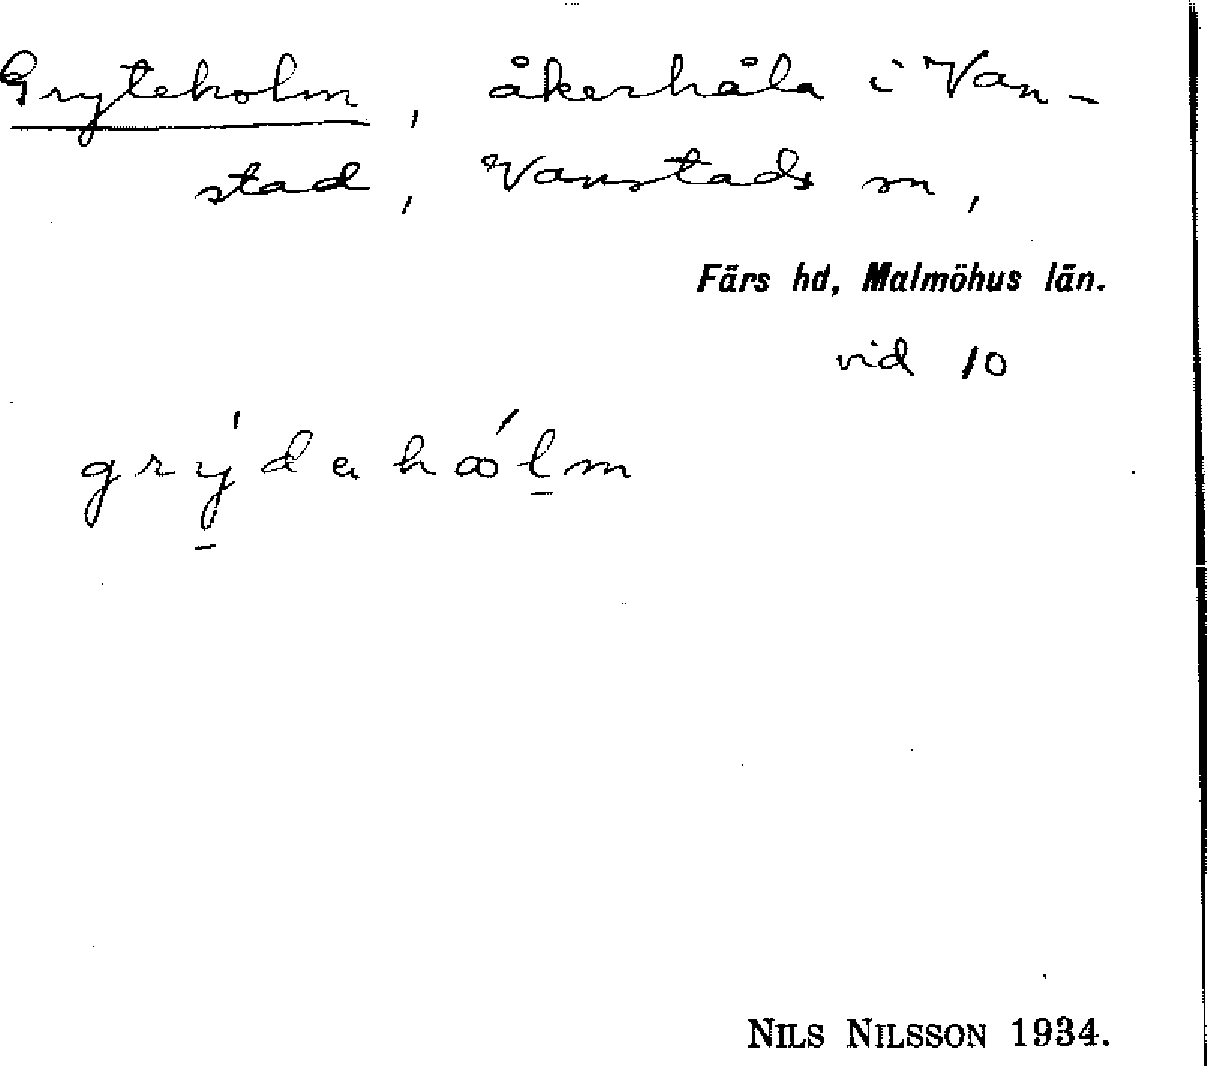 Gryteholm, åkerhåla i Van-
stad, Vanstads sn,
Färs hd, Malmöhus län.
vid 10
grýdahålm
NILS NILSSON 1934.